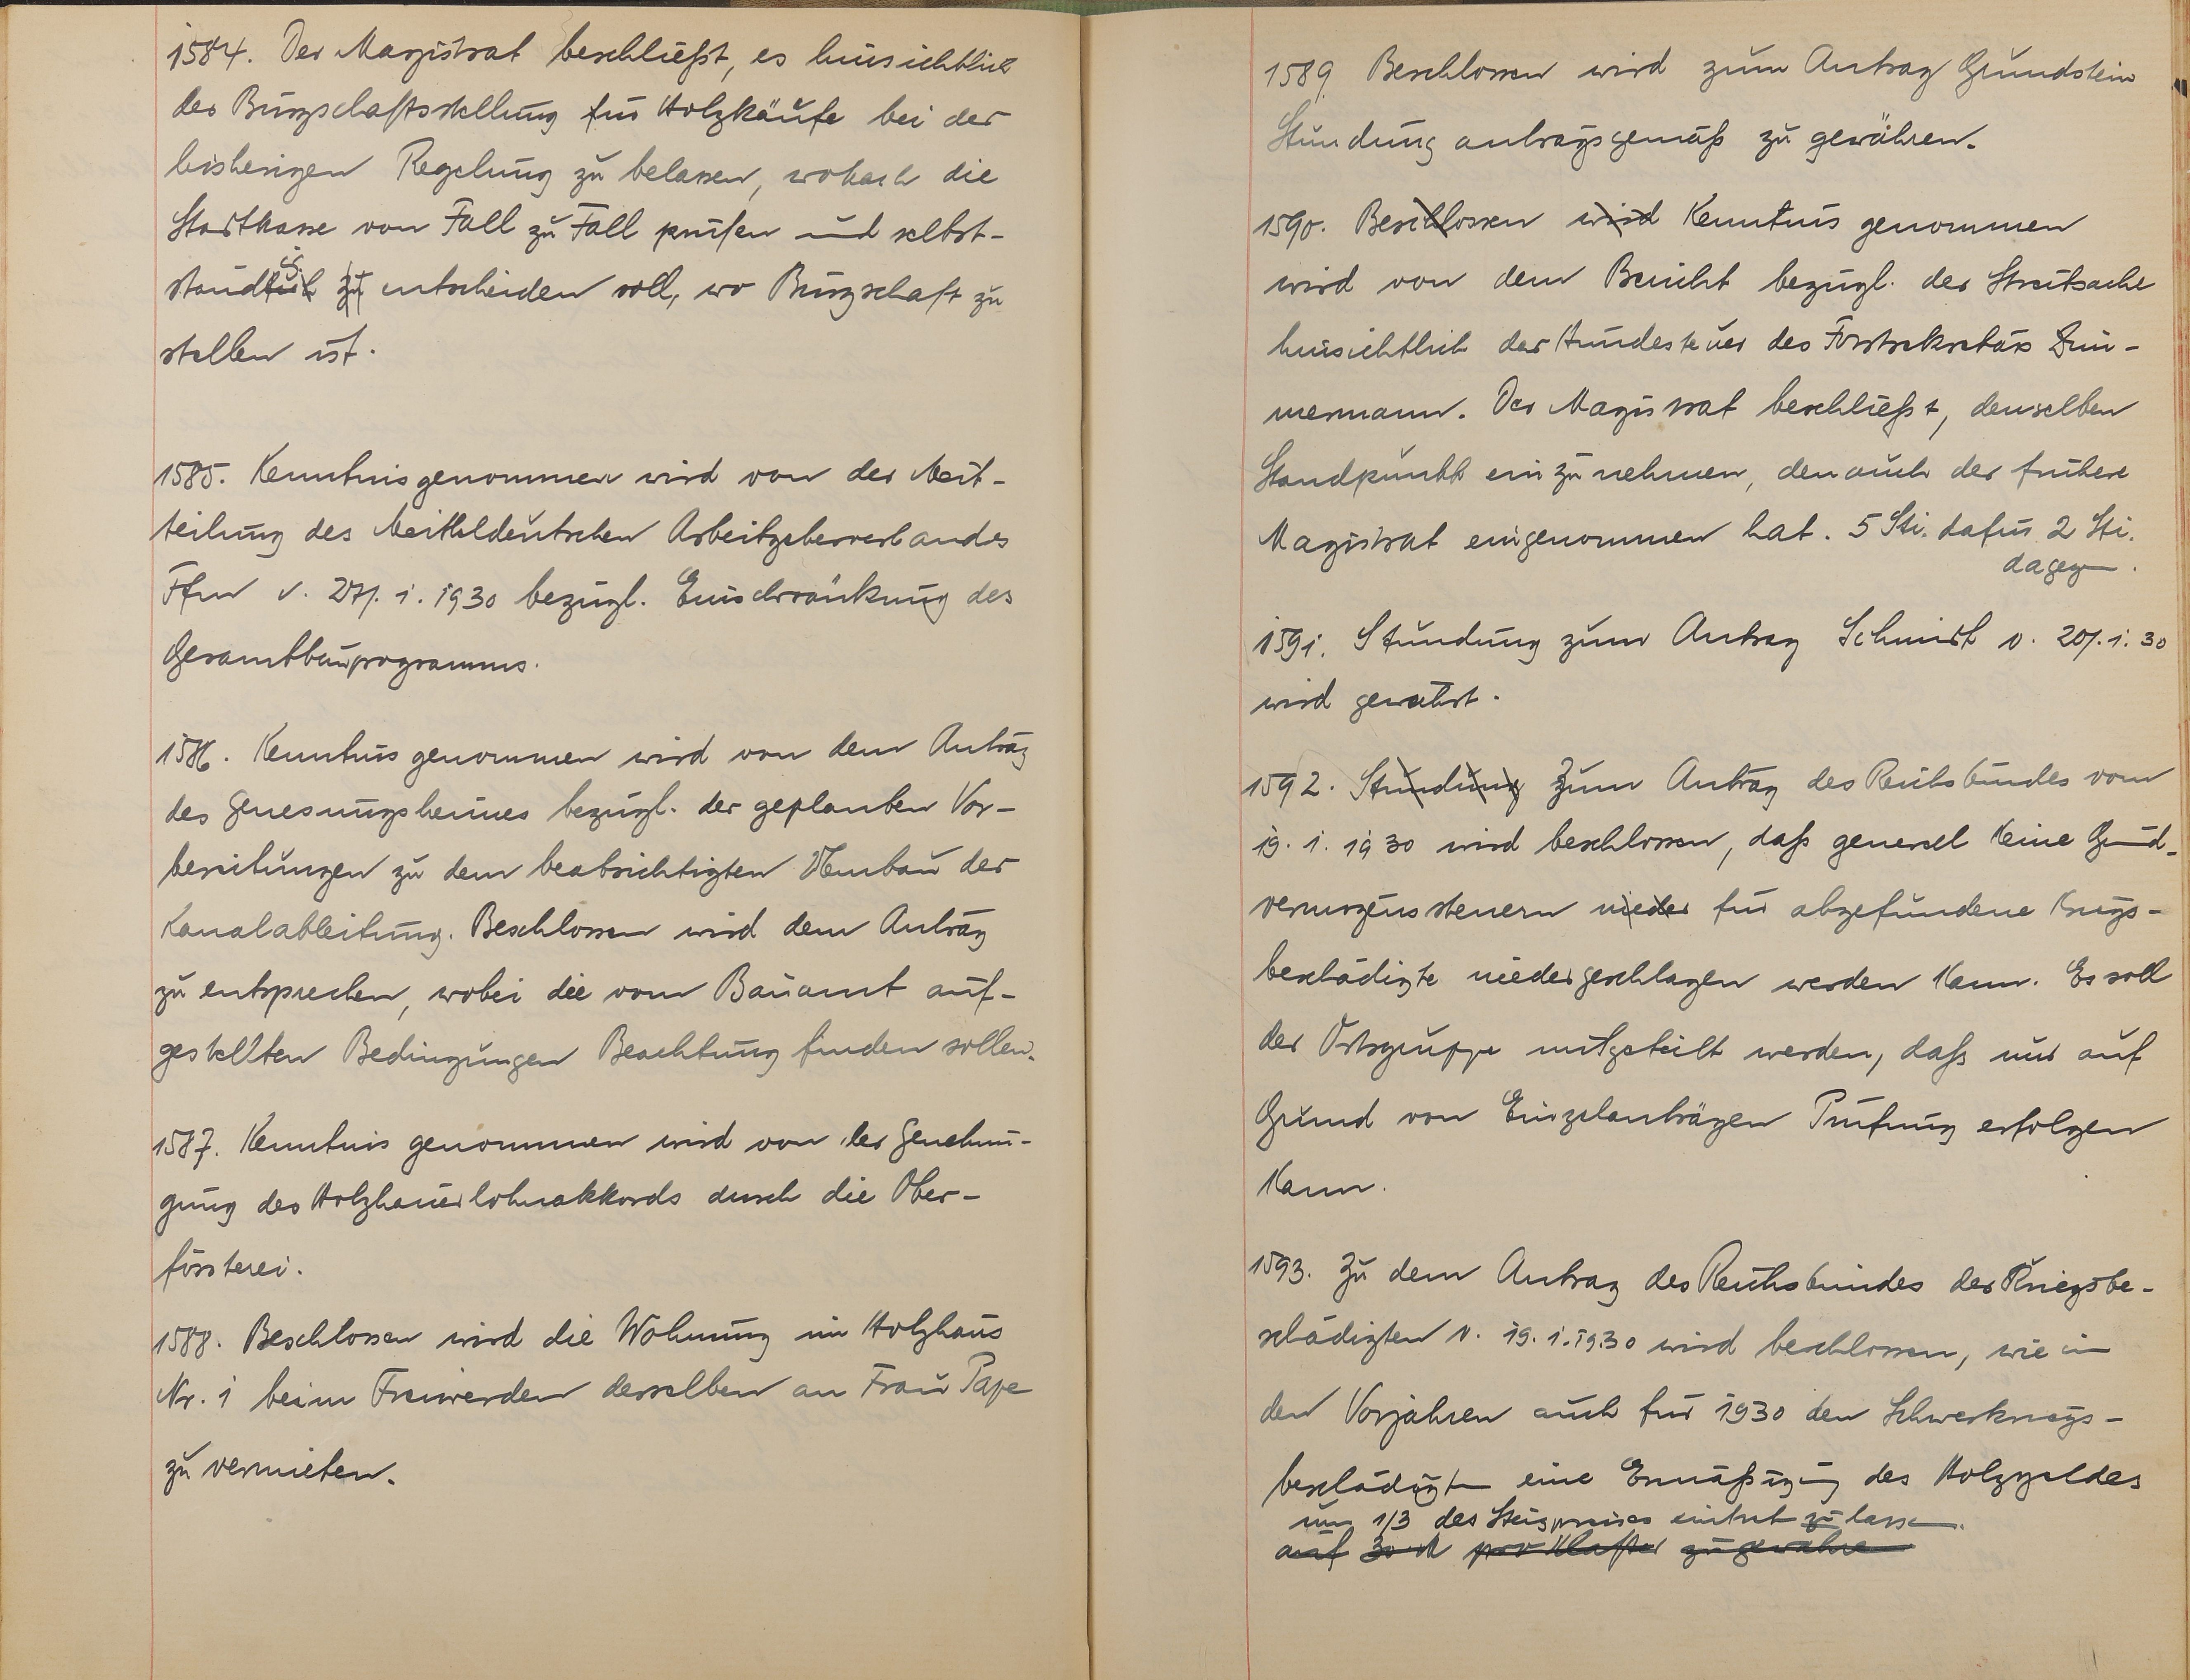 1584. Der Magistrat beschließt, es hinsichtlich
der Bürgschaftsstellung für Holzkäufe bei der
bisherigen Regelung zu belassen, wobach die
Stadtkasse von Fall zu Fall prüfen und selbst-
ständig entscheiden soll, wo Bürgschaft zu
stellen ist.
1585. Kenntnis genommen wird von der Mit-
teilung des Mitteldeutschen Arbeitgeberverbandes
Ffm v. 27. 1. 1930 bezügl. Einschränkung des
Gesamtbauprogramms.
1586. Kenntnis genommen wird von dem Antrag
des Genesungsheimes bezügl. der geplanten Vor-
bereitungen zu dem beabsichtigten Neubau der
Kanalableitung. Beschlossen wird dem Antrag
zu entsprechen, wobei die vom Bauamt auf-
gestellten Bedingungen Beachtung finden sollen.
1587. Kenntnis genommen wird von der Genehmi-
gung des Holzhauerlohnakkords durch die Ober-
försterei.
1588. Beschlossen wird die Wohnung im Holzhaus
Nr. 1 beim Freiwerden derselben an Frau Pape
zu vermieten.
1589 Beschlossen wird zum Antrag Grundstein
Stundung antragsgemäß zu gewähren.
1590. Beschlossen wird Kenntnis genommen
wird von dem Bericht bezügl. der Streitsache
hinsichtlich der Hundesteuer des Forstsekretärs Zim-
mermann. Der Magistrat beschließt, denselben
Standpunkt einzunehmen, den auch der frühere
Magistrat eingenommen hat. 5 Sti. dafür 2 Sti.
dagegen.
1591. Stundung zum Antrag Schmidt v. 20. 1. 30
wird gewährt.
1592. Stundung Zum Antrag des Reichsbundes vom
19. 1. 1930 wird beschlossen, daß generell keine Grund-
vermögenssteuern nieder für abgefundene Kriegs-
beschädigte niedergeschlagen werden kann. Es soll
der Ortsgruppe mitgeteilt werden, daß nur auf
Grund von Einzelanträgen Prüfung erfolgen
kann.
1593. Zu dem Antrag des Reichsbundes der Kriegsbe-
schädigten v. 19. 1. 1930 wird beschlossen, wie in
den Vorjahren auch für 1930 den Schwerkriegs-
beschädigten eine Ermäßigung des Holzgeldes
um 1/3 des Steigpreises eintret zu lassen.
auf 30 M pro Klafter zu gewähren